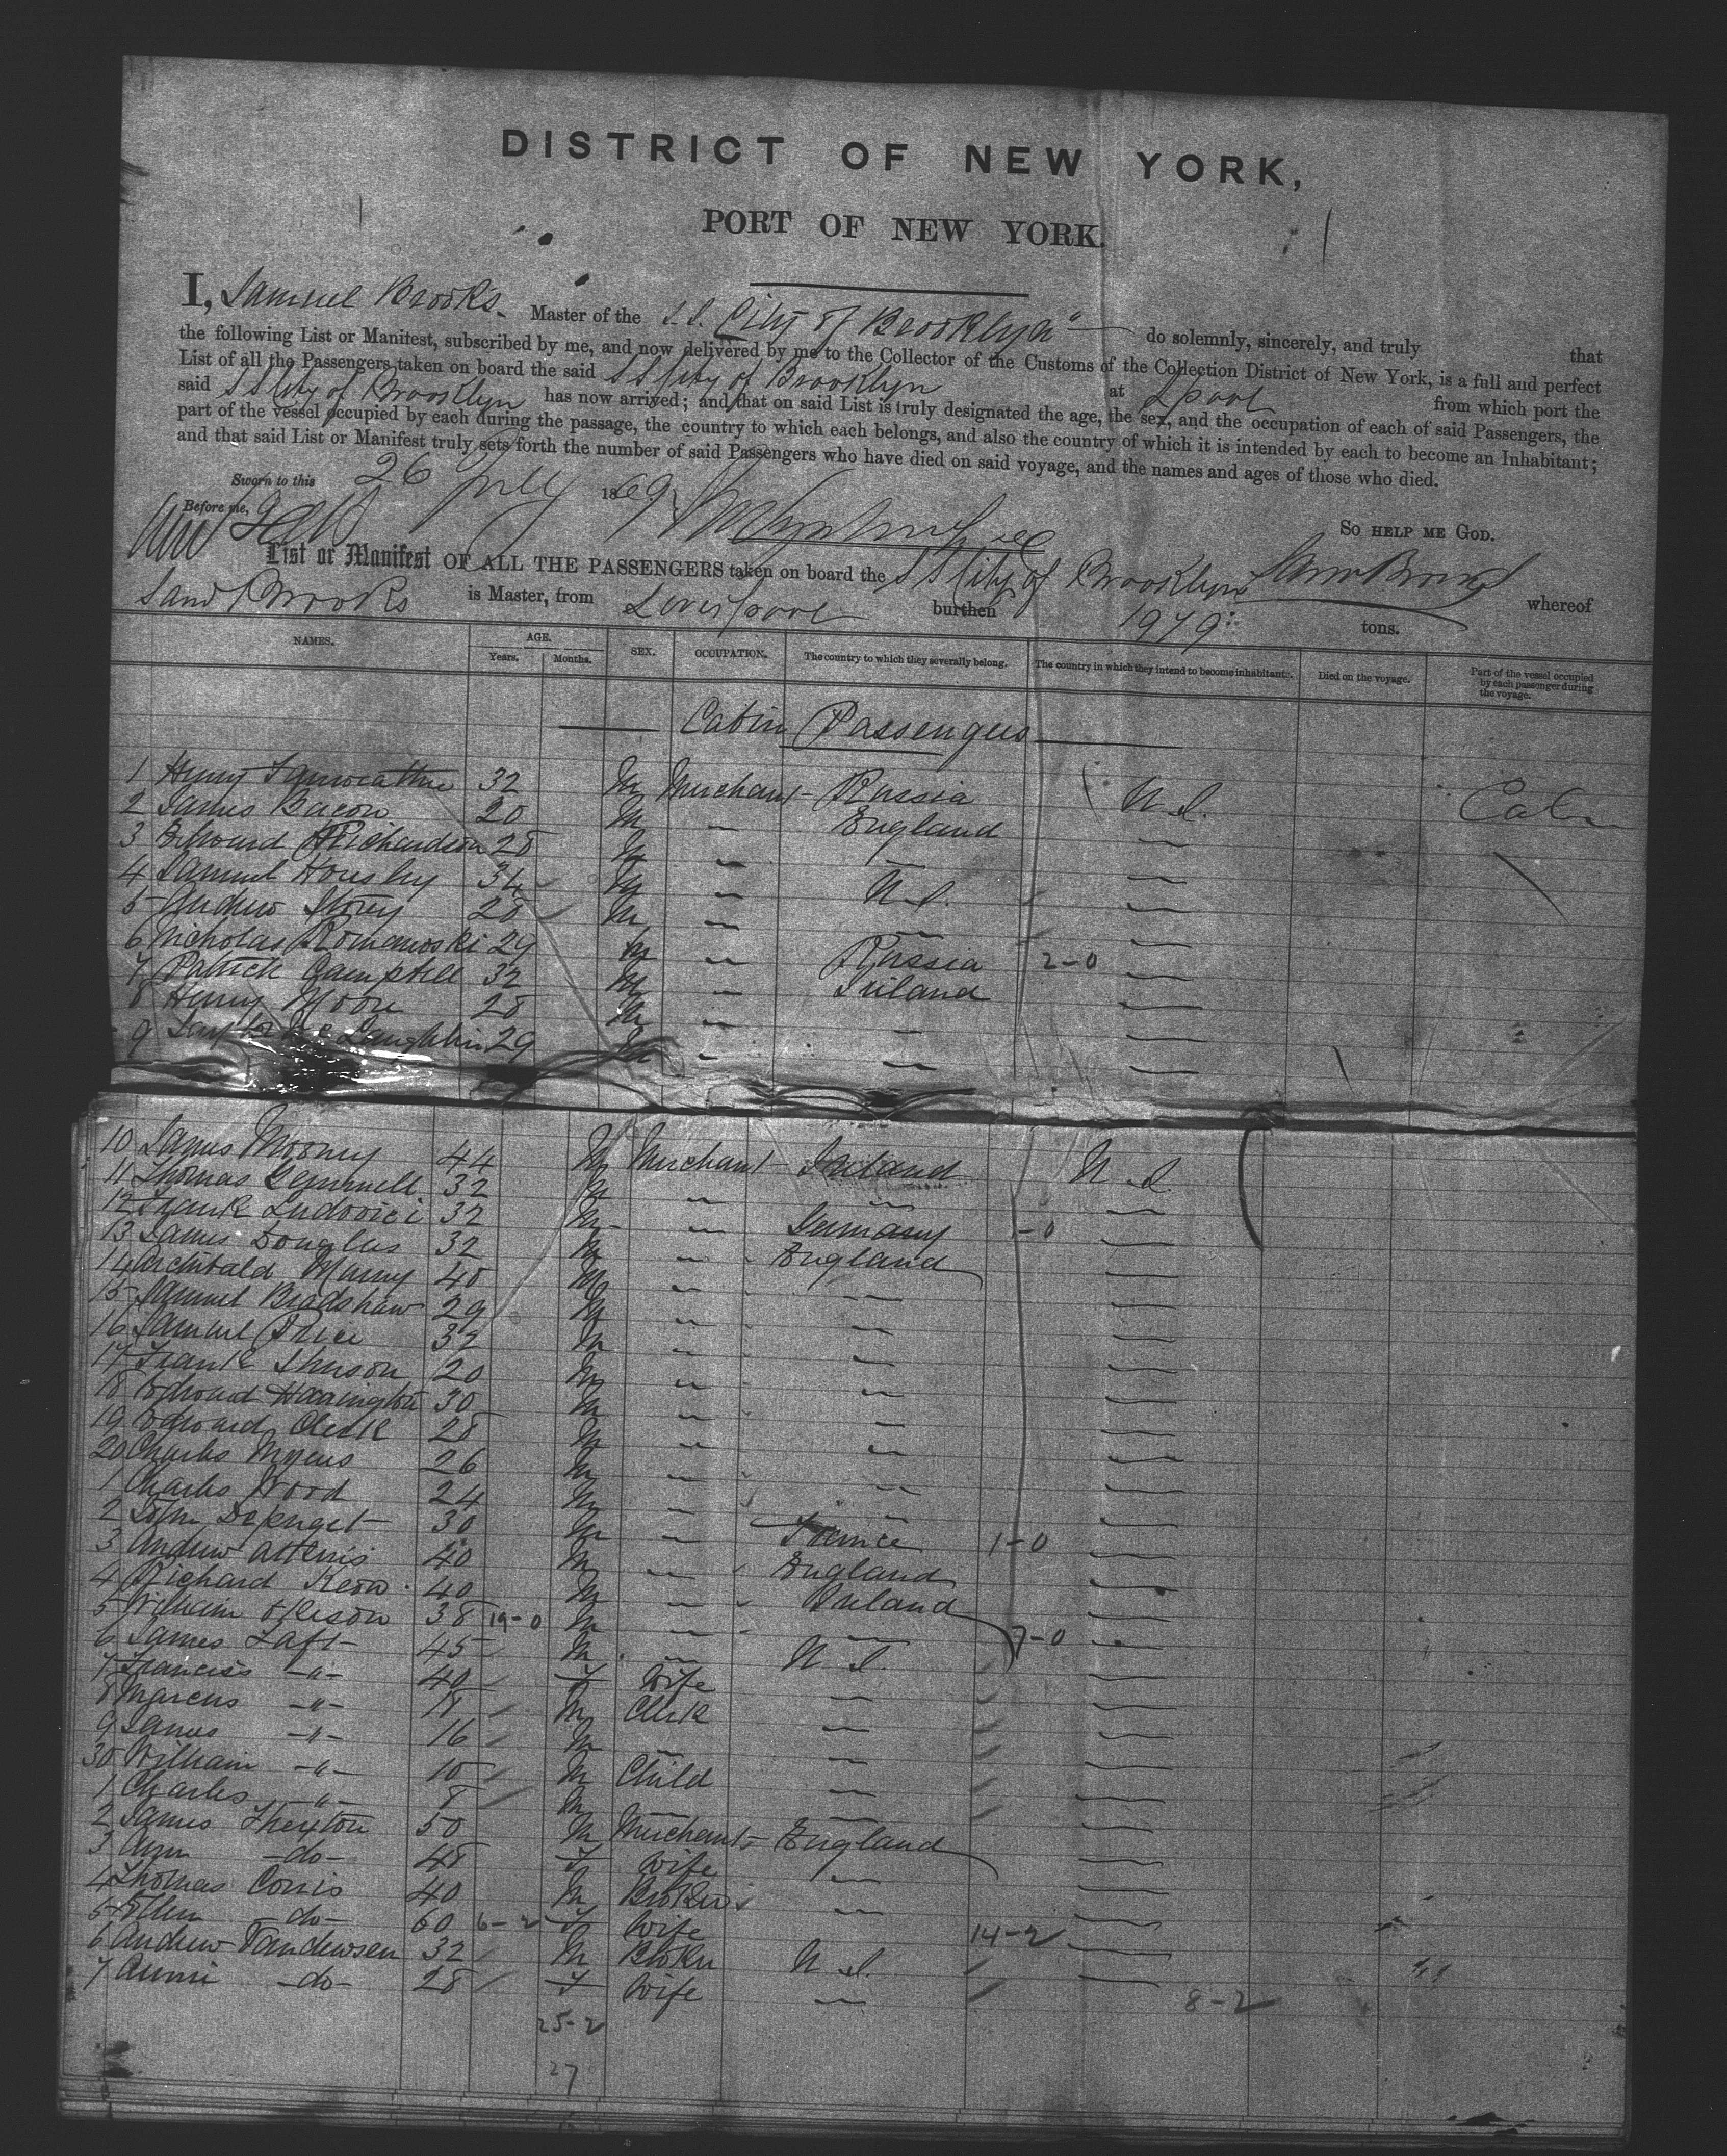 DISTRICT OF NEW YORK,
PORT OF NEW YORK.
I, Samuel Brooks Master of the S.S. "City of Brooklyn" do solemnly, sincerely, and truly that
the following List or Manifest, subscribed by me, and now delivered by me to the Collector of the Customs of the Collection District of New York, is a full and perfect
List of all the Passengers taken on board the said S S City of Brooklyn at Lpool from which port the
said S S City of Brooklyn has now arrived; and that on said List is truly designated the age, the sex, and the occupation of each of said Passengers, the
part of the vessel occupied by each during the passage, the country to which each belongs, and also the country of which it is intended by each to become an Inhabitant;
and that said List or Manifest truly sets forth the number of said Passengers who have died on said voyage, and the names and ages of those who died.
Sworn to this 26 July 1869
Before me, So HELP ME GOD.
List or Manifest OF ALL THE PASSENGERS taken on board the S S City of Brooklyn Sam Brooks whereof
Saml Brooks is Master, from Liverpool burthen 1979 tons.
NAMES. AGE. Years. Months. SEX. OCCUPATION. The country to which they severally belong. The country in which they intend to become inhabitants. Died on the voyage. Part of the vessel occupied by each passenger during the voyage.
Cabin Passengers
1 Henry 32 M Merchant Russia U.S. Cabin
2 James Bacon 20 M " England "
3 Edward Richardson 28 M " " "
4 Samuel Housley 34 M " U.S. "
5 Andrew Storey 28 M " " "
6 Nicholas Romanoski 29 M " Russia 2-0 "
7 Patrick Campbell 32 M " Ireland "
8 Henry Moore 28 M " " "
9 McLaughlin 29 M " " "
10 James Mooney 44 M Merchant Ireland U.S.
11 Thomas Gemmell 32 M " " "
12 Frank Ludovici 32 M " Germany 1-0 "
13 James Douglas 32 M " England "
14 Archibald Murry 48 M " " "
15 Samuel Bradshaw 29 M " " "
16 Samuel Price 32 M " " "
17 Frank 20 M " " "
18 Edward Harrington 30 M " " "
19 Edward Clerk 28 M " " "
20 Charles Myers 26 M " " "
1 Charles Wood 24 M " " "
2 John 30 M " France 1-0 "
3 Andrew 40 M " England "
4 Richard 40 M " Ireland "
5 William 38 19-0 M " " 7-0 "
6 James Taft 45 M " U.S. "
7 Franciss -"- 40 F Wife " "
8 Marcus -"- 18 M Clerk " "
9 James -"- 16 M " " "
30 William -"- 10 M Child " "
1 Charles -"- 8 M " " "
2 James Thexton 50 M Merchant England "
3 Ann -do- 48 F Wife " "
4 Thomas 40 M Broker " "
5 Ellen -do- 60 6-2 F Wife " 14-2 "
6 Andrew 32 M Broker U.S. "
7 Annie -do- 28 F Wife " 8-2
25-2
27